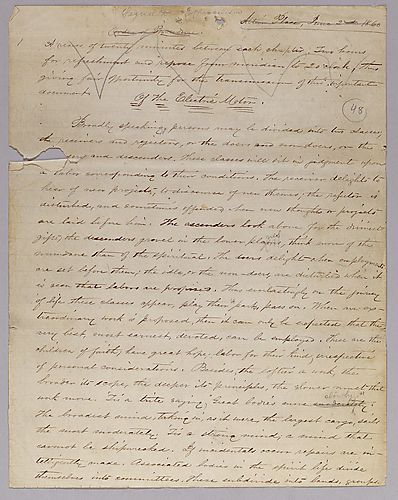 Astor Place, June 2nd 1860
A recess of twenty minutes between each chapter, Two hours
for refreshment and repose from meridian to 2 o'clock, thus
giving fair opportunity for the transmission of this important
document.
Of the Electric Motor.
48
Broadly speaking, persons may be divided into two classes,
the receivers and rejectors, or the doers and non doers, or the
and descenders. These classes will sit in judgment upon
a labor corresponding to their conditions. The receiver delights to
hear of new projects, to discourse of new themes; the rejector is
disturbed, and sometimes offended when new thoughts or projects
are laid before him. The ascenders look above for the divinest
gifts; the descenders grovel in the lower plains, think more of the
mundane than of the spiritual. The doers delight when employments
are set before them; the idle, or the non-doers, are disturbed when it
is seen that labors are proposed. Thus unitedly on the journey
of life these classes appear, play their part, pass on. When an ex-
traordinary work is proposed, then it can only be expected that the
very best, most earnest, devoted, can be employed. These are the
children of faith, have great hope, labor for their kind, irrespective
of personal considerations. Besides, the loftier a work, the
broader its scope, the deeper its principles, the slower must that
work move. Tis a trite saying, Great bodies move slowly
The broadest mind, taking in, as it were, the largest cargo, sails
the most moderately. Tis a strong mind; a mind that
cannot be shipwrecked. If incidents occur repairs are in-
telligently made. Associated bodies in the spirit life divide
themselves into committees. These subdivide into bands, groups